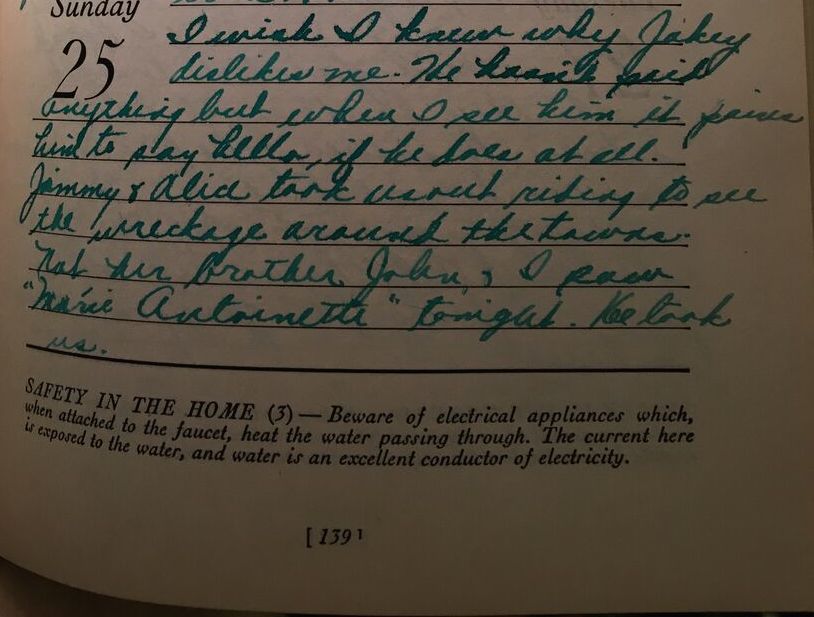 Sunday
25
I wish I knew why Jakey
dislikes me. He hasn't said
anything but when I see him it pains
him to say hello, if he does at all.
Jimmy & Alice took us out riding to see
the wreckage around the towns.
Nat her brother John, & I saw
"Marie Antoinette" tonight. He took
us.
SAFETY IN THE HOME (3) — Beware of electrical appliances which,
when attached to the faucet, heat the water passing through. The current here
is exposed to the water, and water is an excellent conductor of electricity.
[ 139 ]